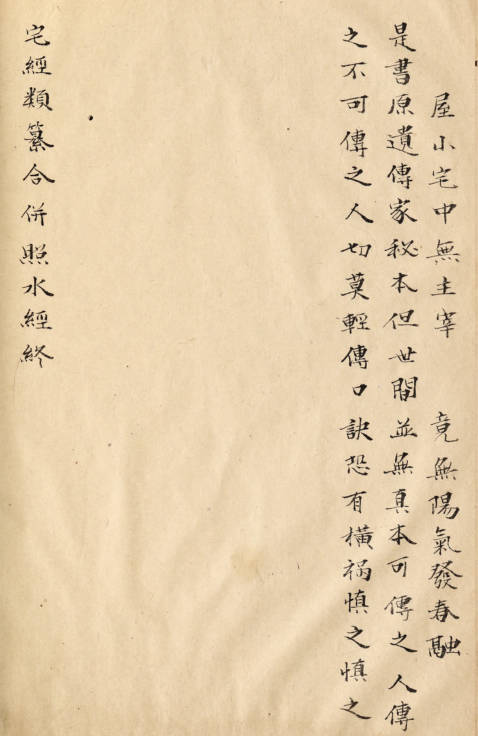 屋小宅中無主宰　竟無陽氣發春融
是書原遺傳家秘本但世間並無真本可傳之人傳
之不可傳之人切莫輕傳口訣恐有橫禍慎之慎之
宅經類纂合併照水經終